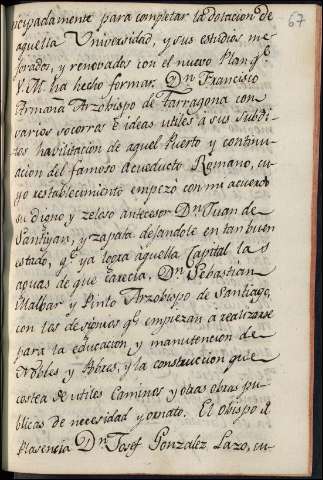 67
ticipadamente para completar la dotacion de
aquella Universidad, y sus estudios me-
jorados, y renovados con el nuevo Plan q.e
V. M. ha hecho formar. D.n Francisco
Armaña Arzobispo de Tarragona con
varios socorros e ideas utiles à sus subdi-
tos habilitacion de aquel Puerto y continu-
acion del famoso Acueducto Romano, cu-
yo restablecimiento empezó con mi acuerdo
su digno y zeloso antecesor D.n Juan de
Santiyan, y zapata dejandole en tan buen
estado, q.e ya logra aquella Capital las
aguas de que carecia. D.n Sebastian
Malbar y Pinto Arzobispo de Santiago,
con los designios q.e empiezan à realizarse
para la educacion y manutencion de
Nobles y Pobres, y la construccion que
costea de utiles Caminos y otras obras pu-
blicas de necesidad y ornato. El Obispo de
Plasencia D.n Josef Gonzalez Lazo, cu-